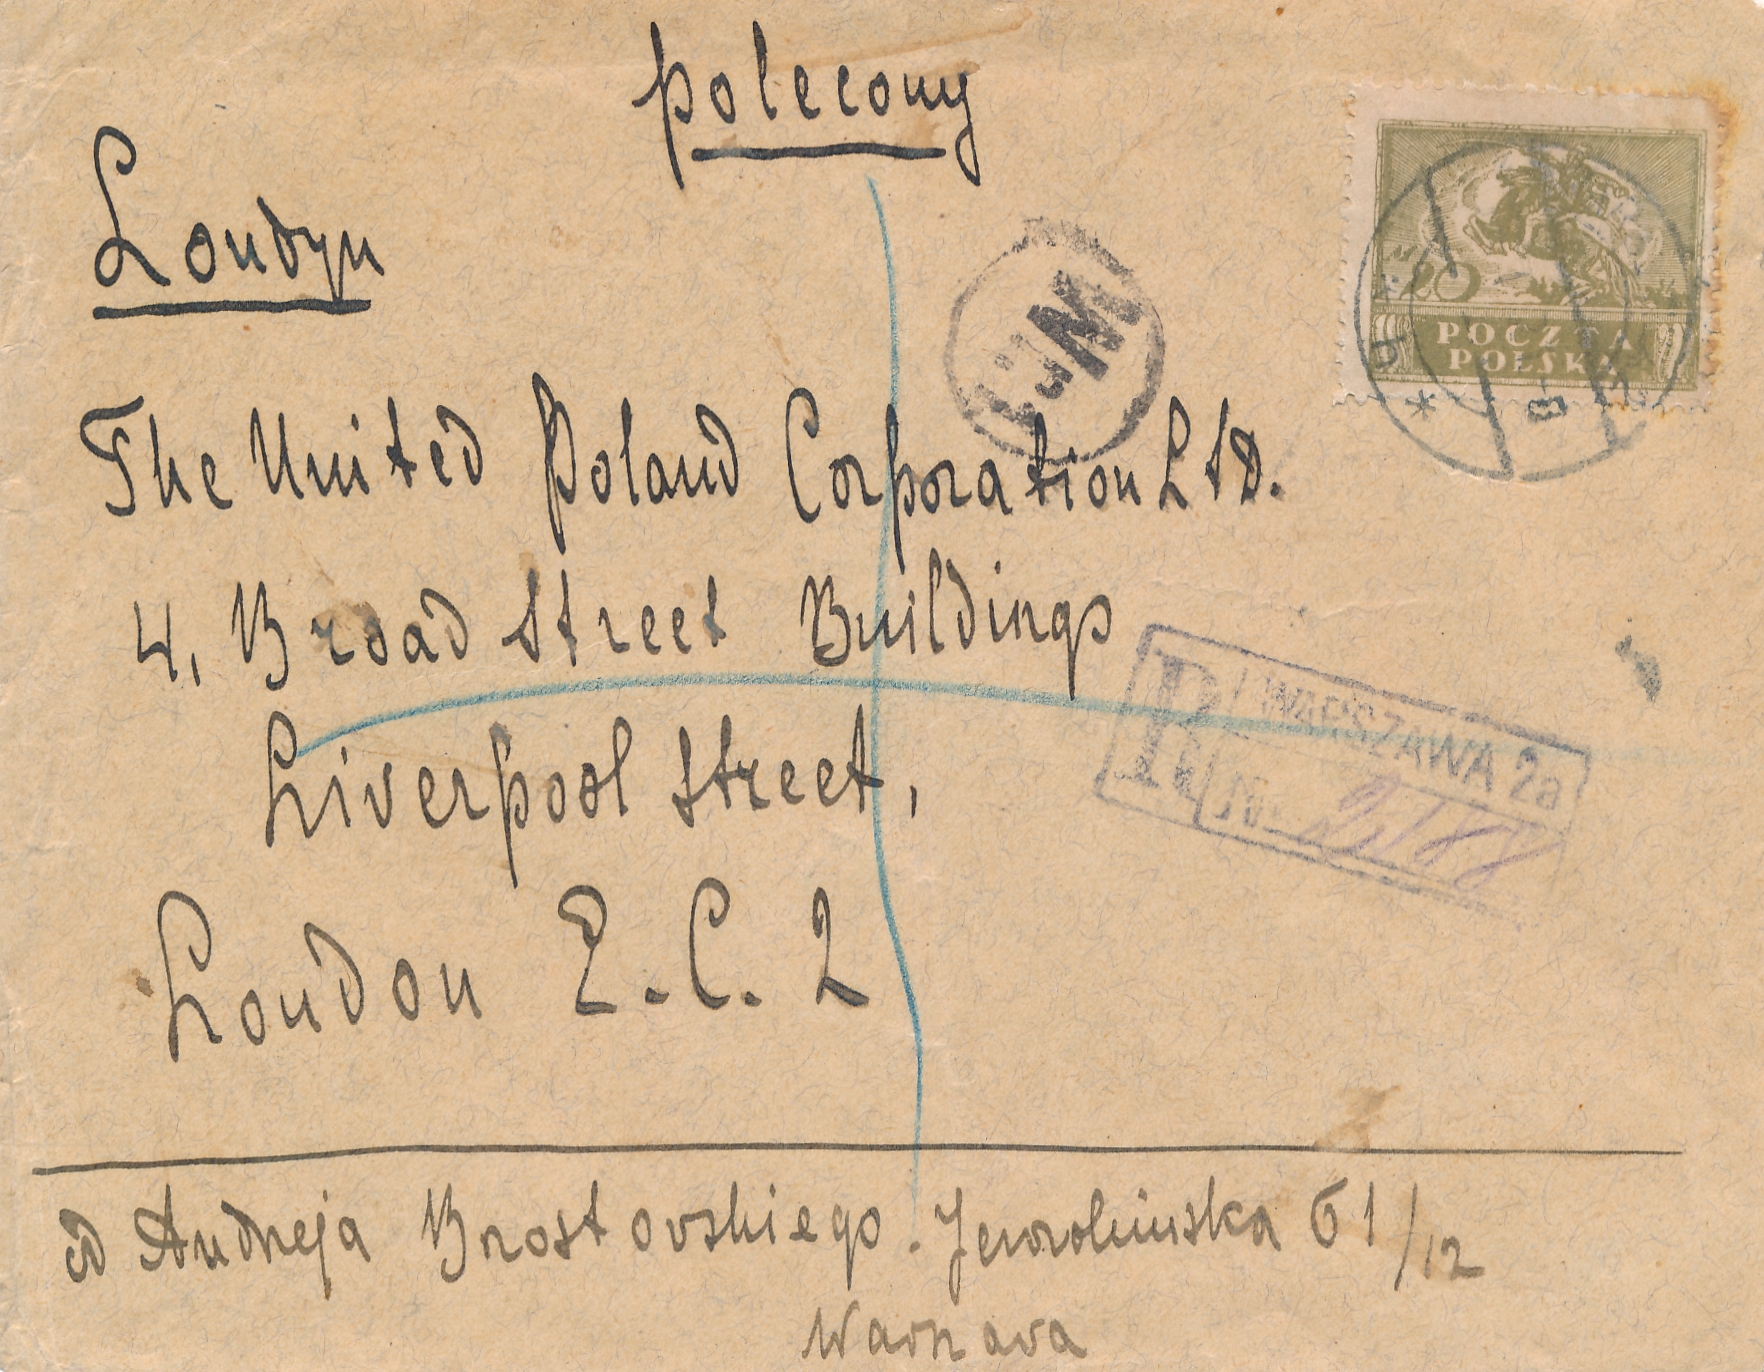 polecony
Londyn
20
POCZTA
POLSKA
The United Poland Corporation LtD.
4, Broad Street Buildings
Liverpool Street,
R WARSZAWA 2a
N
London E.C. 2
od Andreja Brostovskiego. Jerozolimska 61/12
Warszava